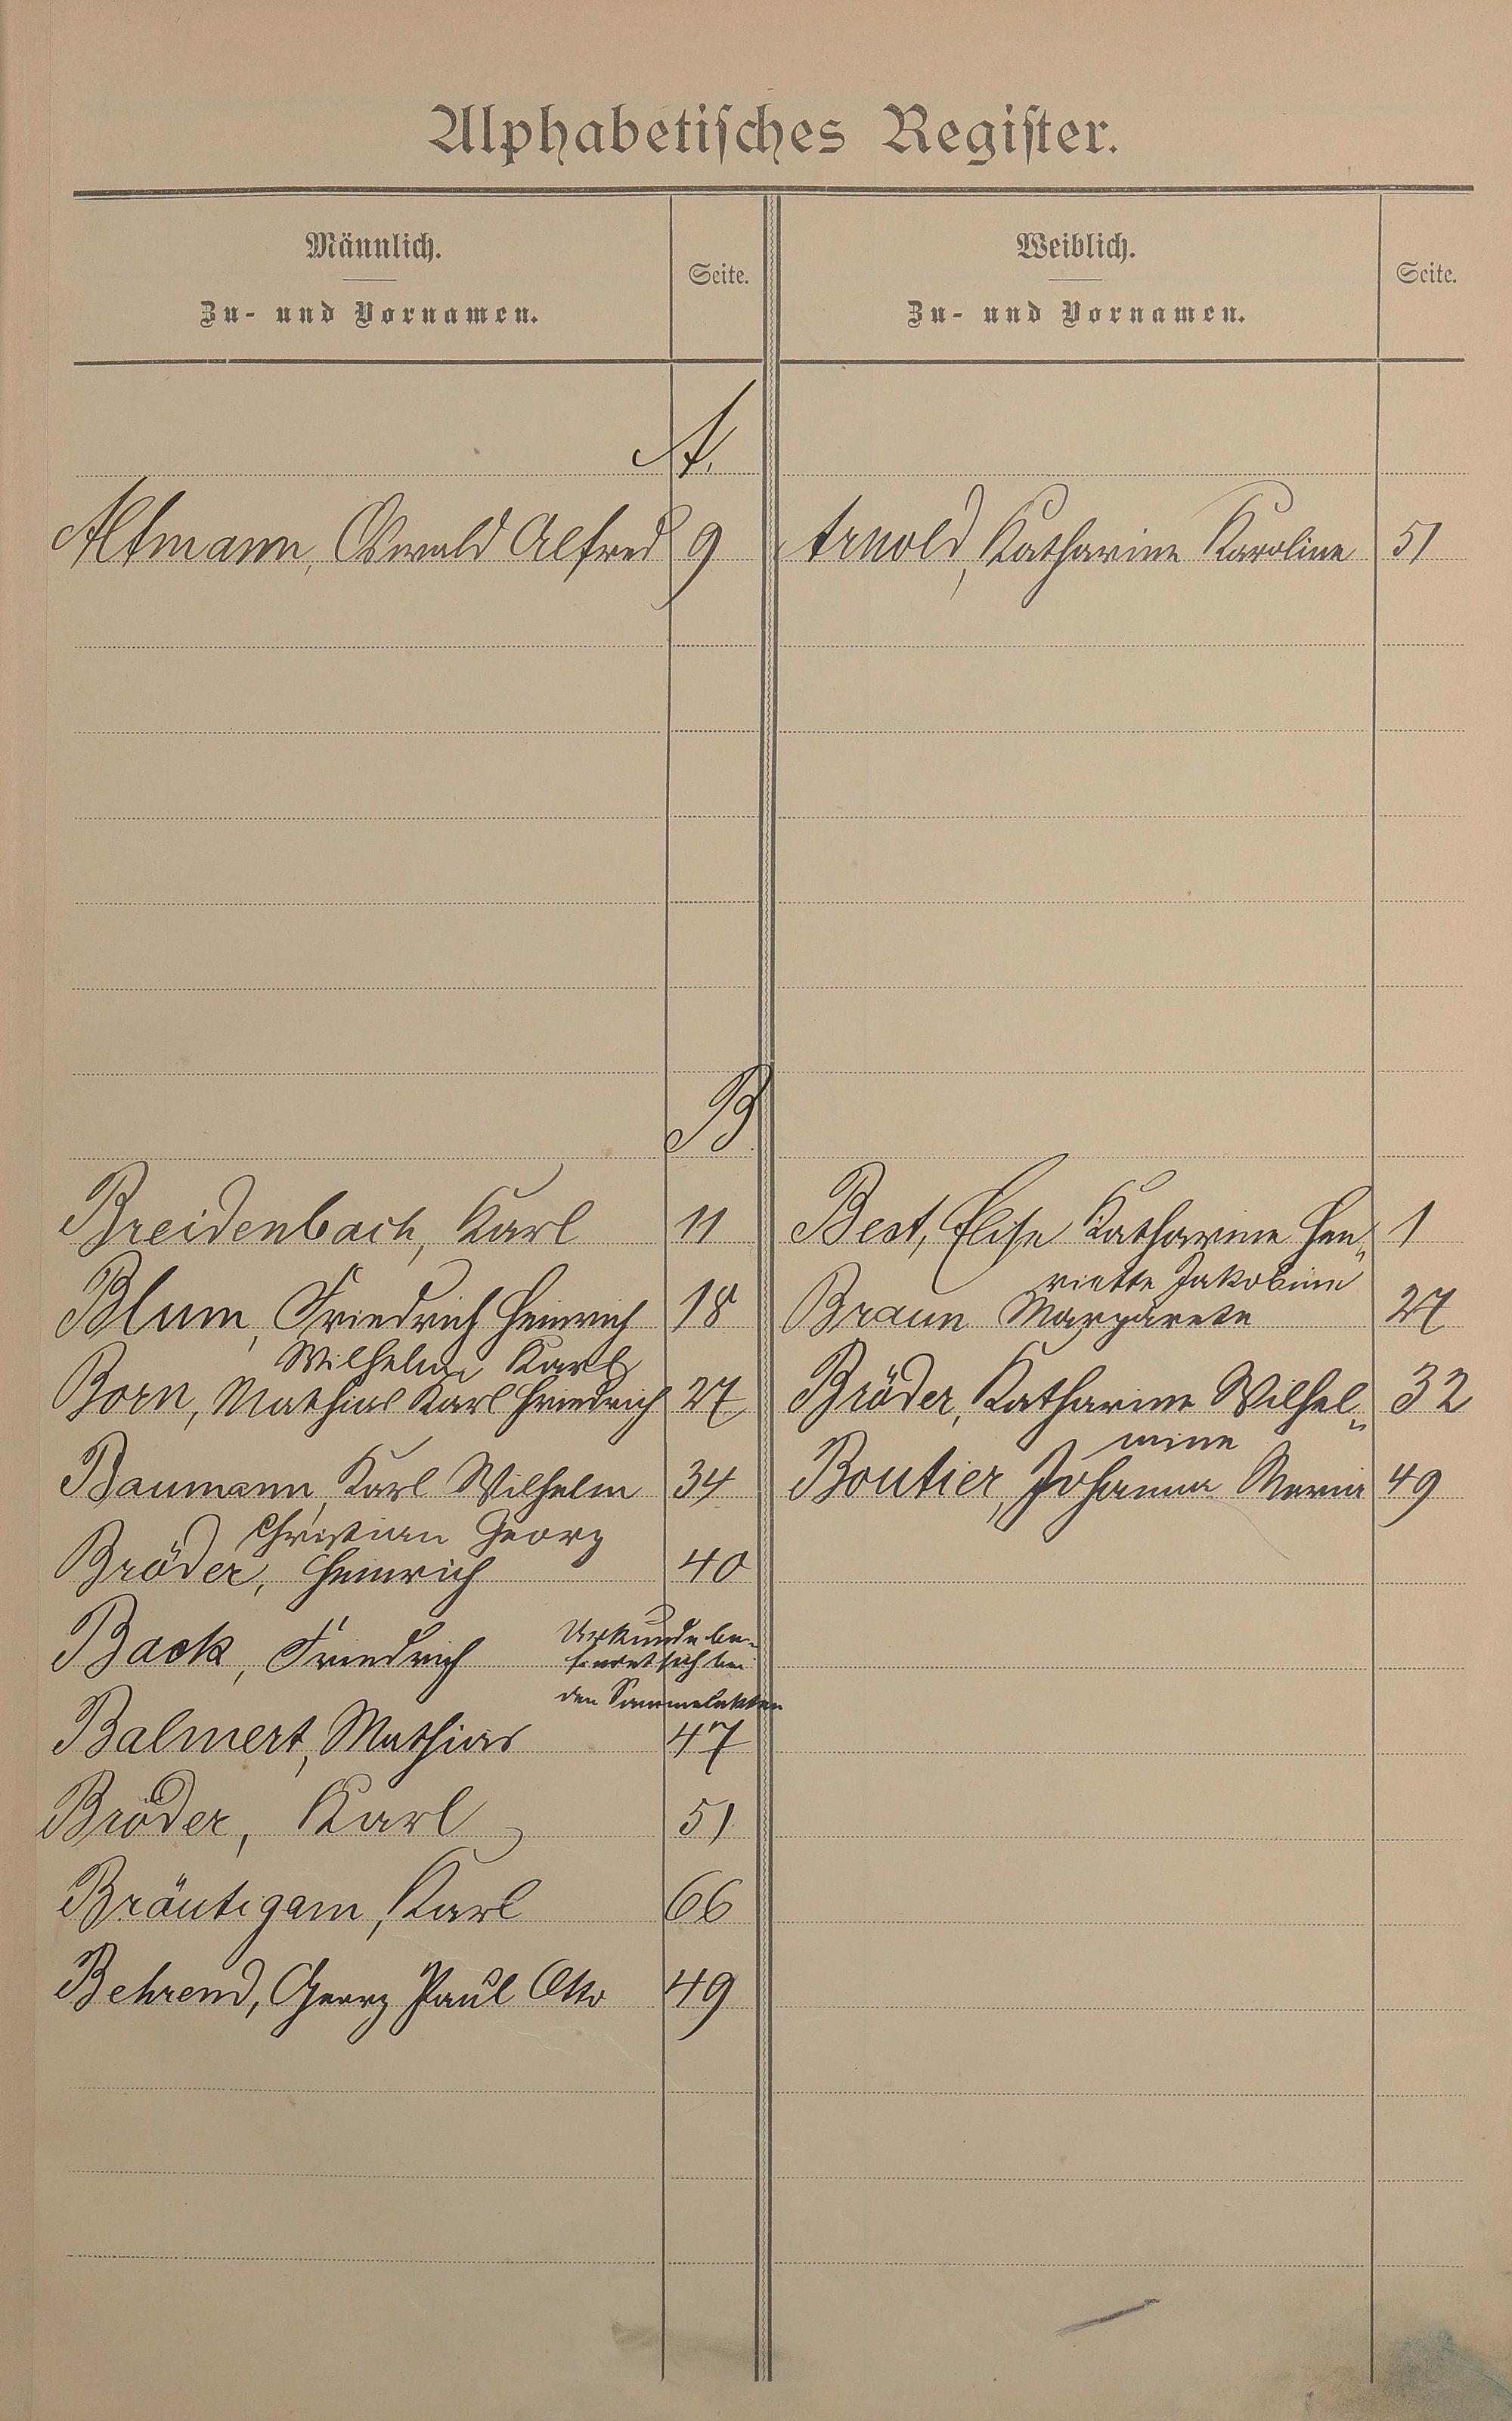 Alphabetisches Register.
Männlich.
Zu- und Vornamen.
Seite.
Weiblich.
Zu- und Vornamen.
Seite.
A.
Altmann, Oswald Alfred 9 Arnold, Katharine Karoline 51
B
Breidenbach, Karl 11 Best, Elise Katharine Hen„ 1
riette Jakobine
Blum, Friedrich Heinrich 18 Braun Margarete 27
Wilhelm Karl
Born, Mathias Karl Friedrich 27 Bröder, Katharine Wilhel„ 32
mine
Baumann, Karl Wilhelm 34 Boutier, Johanna Maria 49
Christian Georg
Bröder, Heinrich 40
Back, Friedrich Urkunde be-
findet sich bei
den Sammelakten
Balmert, Mathias 47
Bröder, Karl 51
Bräutigam, Karl 66
Behrend, Georg Paul Otto 49